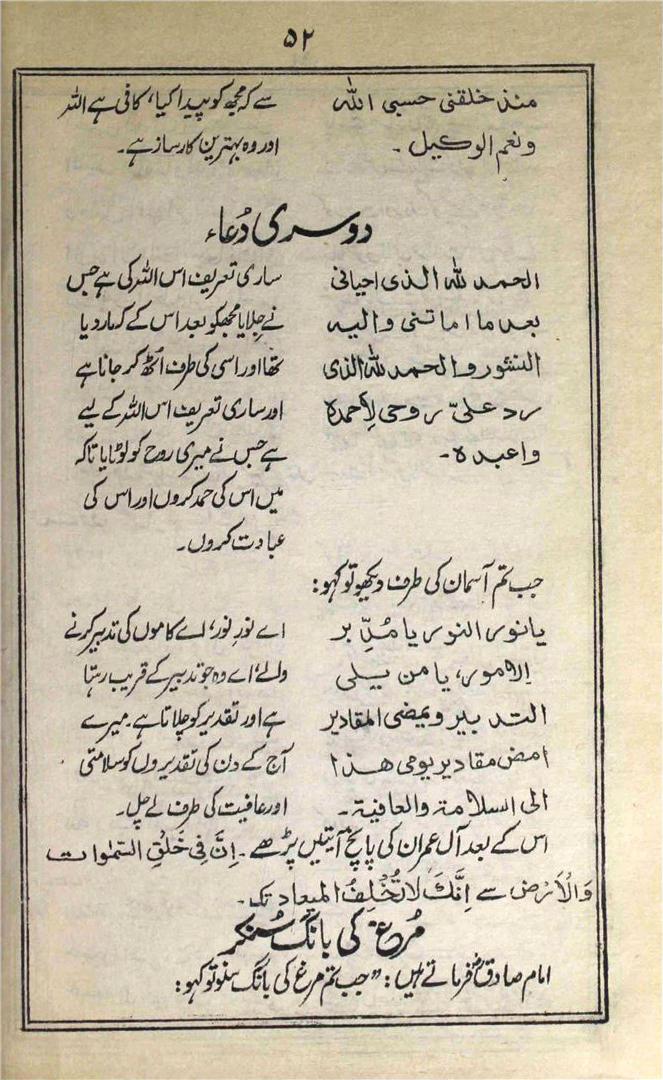 ۵۲
منذ خلقنی حسبی اللّٰه
ونعم الوکیل۔
سے کہ مجھ کو پیدا کیا، کافی ہے اللہ
اور وہ بہترین کارساز ہے۔
دوسری دُعاء
الحمد للّٰه الذی احیانی
بعد ما اماتنی والیه
النشور والحمد للّٰه الذی
رد علیّ روحی لاحمده
واعبده۔
ساری تعریف اس اللہ کی ہے جس
نے جِلایا مجھکو بعد اس کے کہ مار دیا
تھا اور اسی کی طرف اُٹھ کر جانا ہے
اور ساری تعریف اس اللہ کے لیے
ہے جس نے میری روح کو لوٹایا تاکہ
میں اس کی حمد کروں اور اس کی
عبادت کروں۔
جب تم آسمان کی طرف دیکھو تو کہو:
یا نور النور یا مُدِّبر
الامور، یا من یلی
التدبیر ویمضی المقادیر
امض مقادیر یومی هذا
الی السلامة والعافیة۔
اے نورِ نور، اے کاموں کی تدبیر کرنے
والے، اے وہ جو تدبیر کے قریب رہتا
ہے اور تقدیر کو چلاتا ہے۔ میرے
آج کے دن کی تقدیروں کو سلامتی
اور عافیت کی طرف لے چل۔
اس کے بعد آل عمران کی پانچ آیتیں پڑھے۔ اِنَّ فِی خَلْقِ السَّمٰوات
وَالْاَرْض سے اِنَّكَ لَا تُخْلِفُ المیعاد تک۔
مُرغ کی بانگ سُنکر
امام صادقؑ فرماتے ہیں: "جب تم مرغ کی بانگ سنو تو کہو: